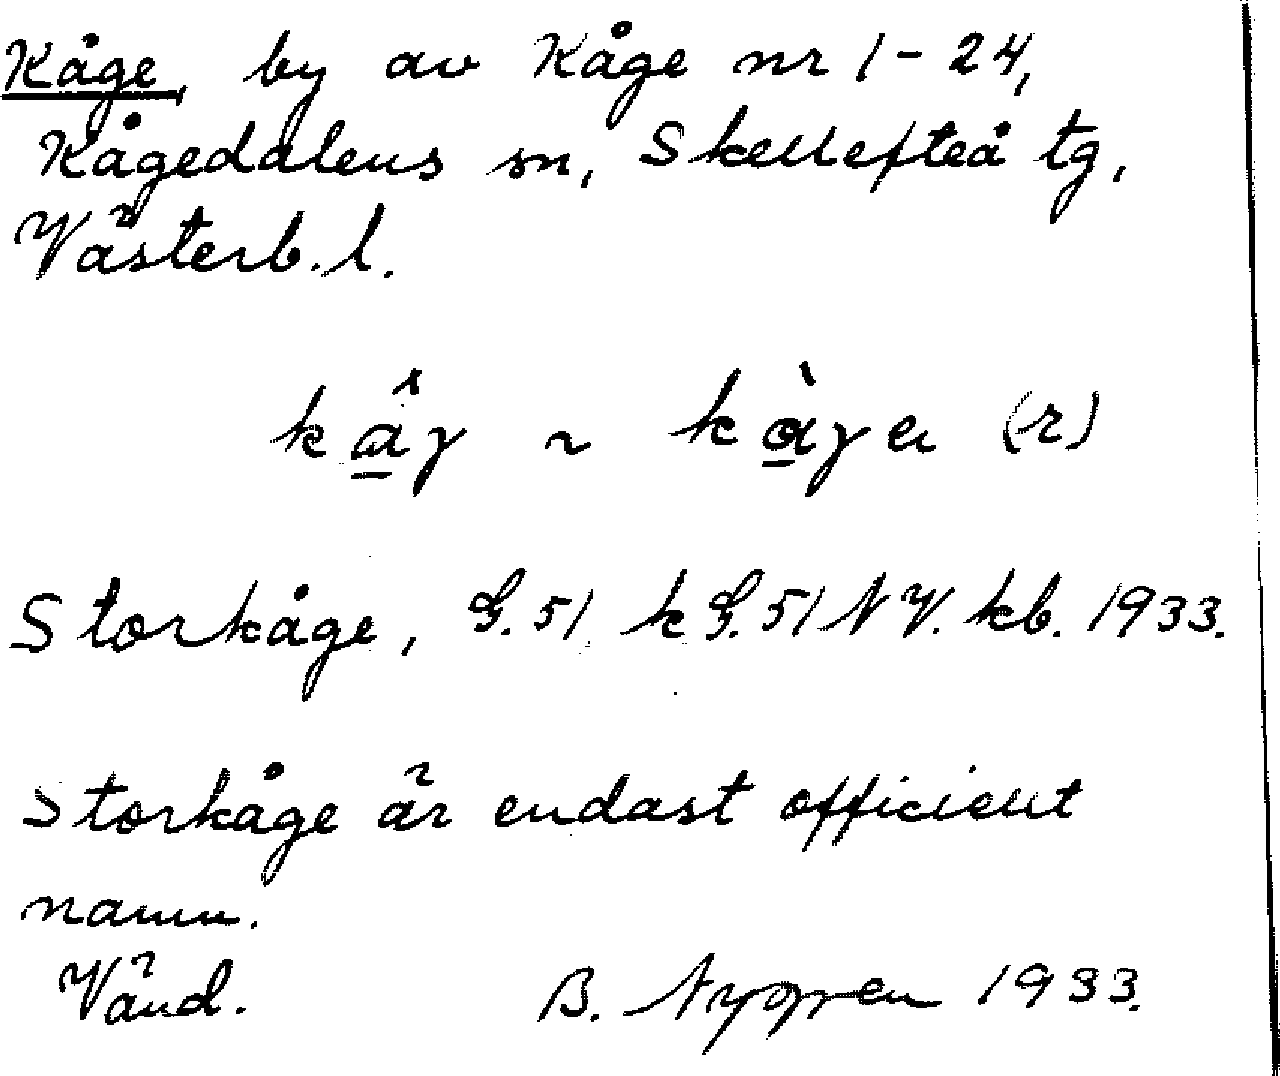 Kåge, by av Kåge nr 1-24,
Kågedalens sn, Skellefteå tg,
Västerb. l.
kå̂γ ~ kå̀γa (r)
Storkåge, G. 51. k G. 51 N V. kb. 1933.
Storkåge är endast officient
namn.
Vänd. B. Nygren 1933.